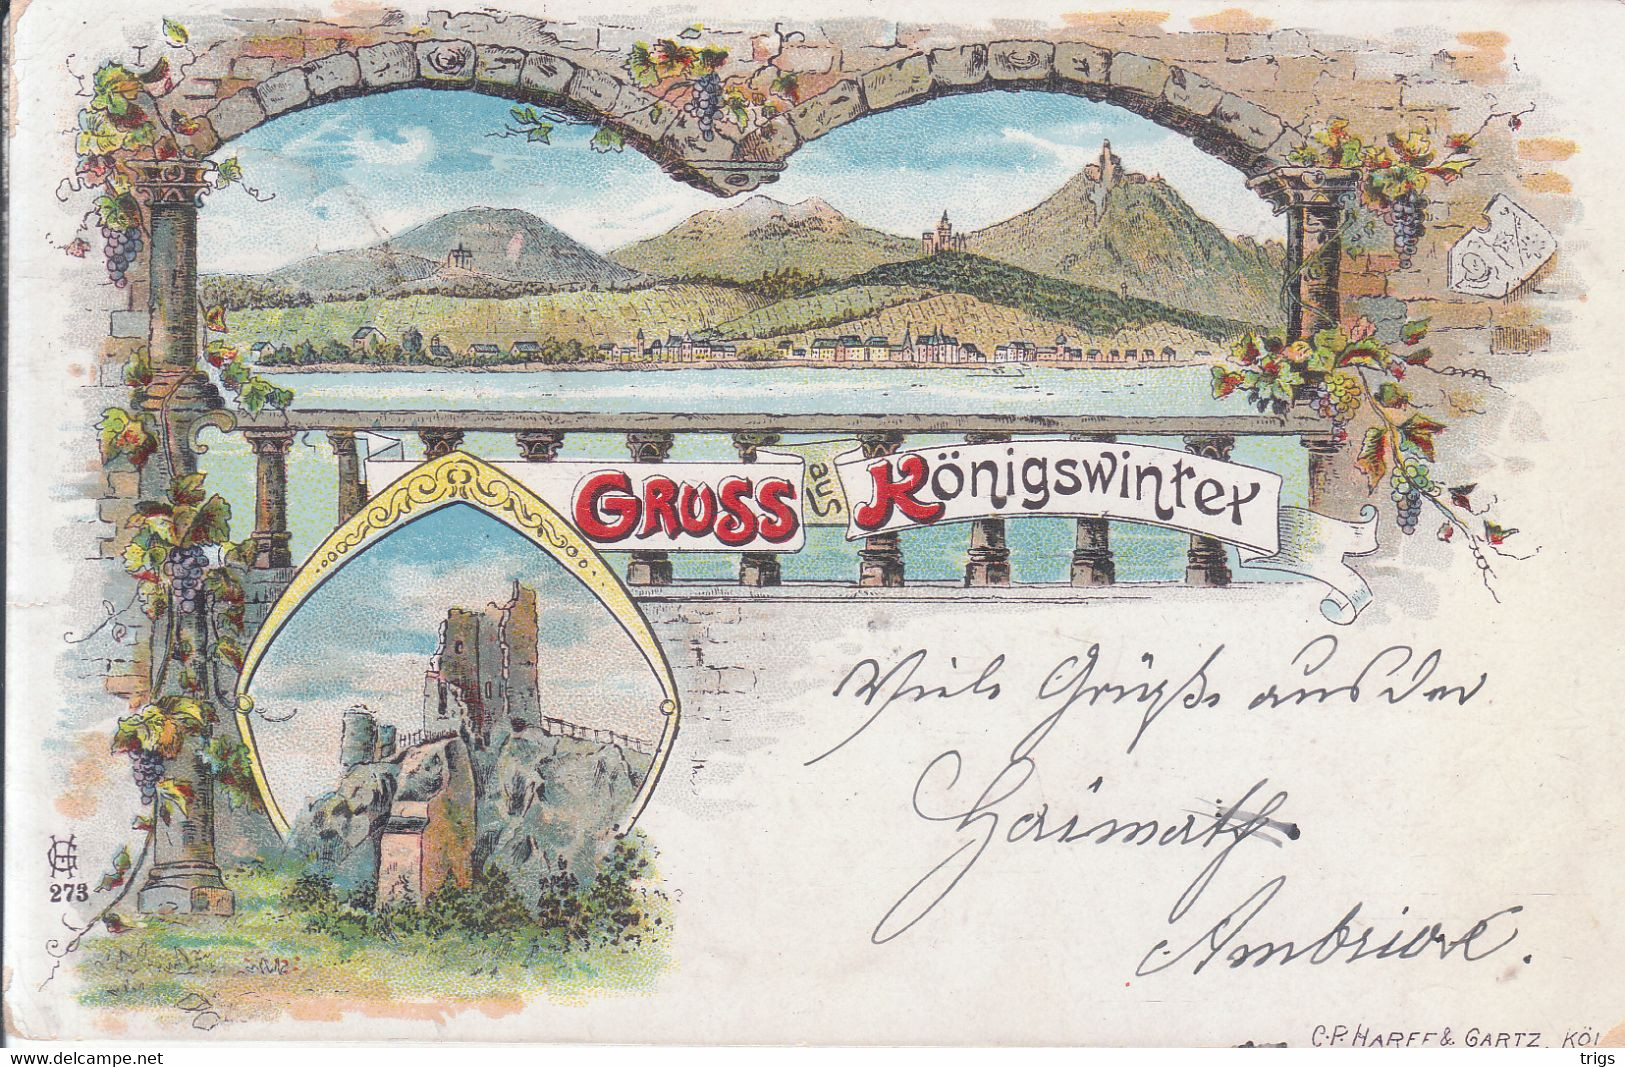 GRUSS aus Königswinter
Viele Grüße aus der
Heimath.
273
C.P. HARFF & GARTZ, KÖL
delcampe.net
trigs